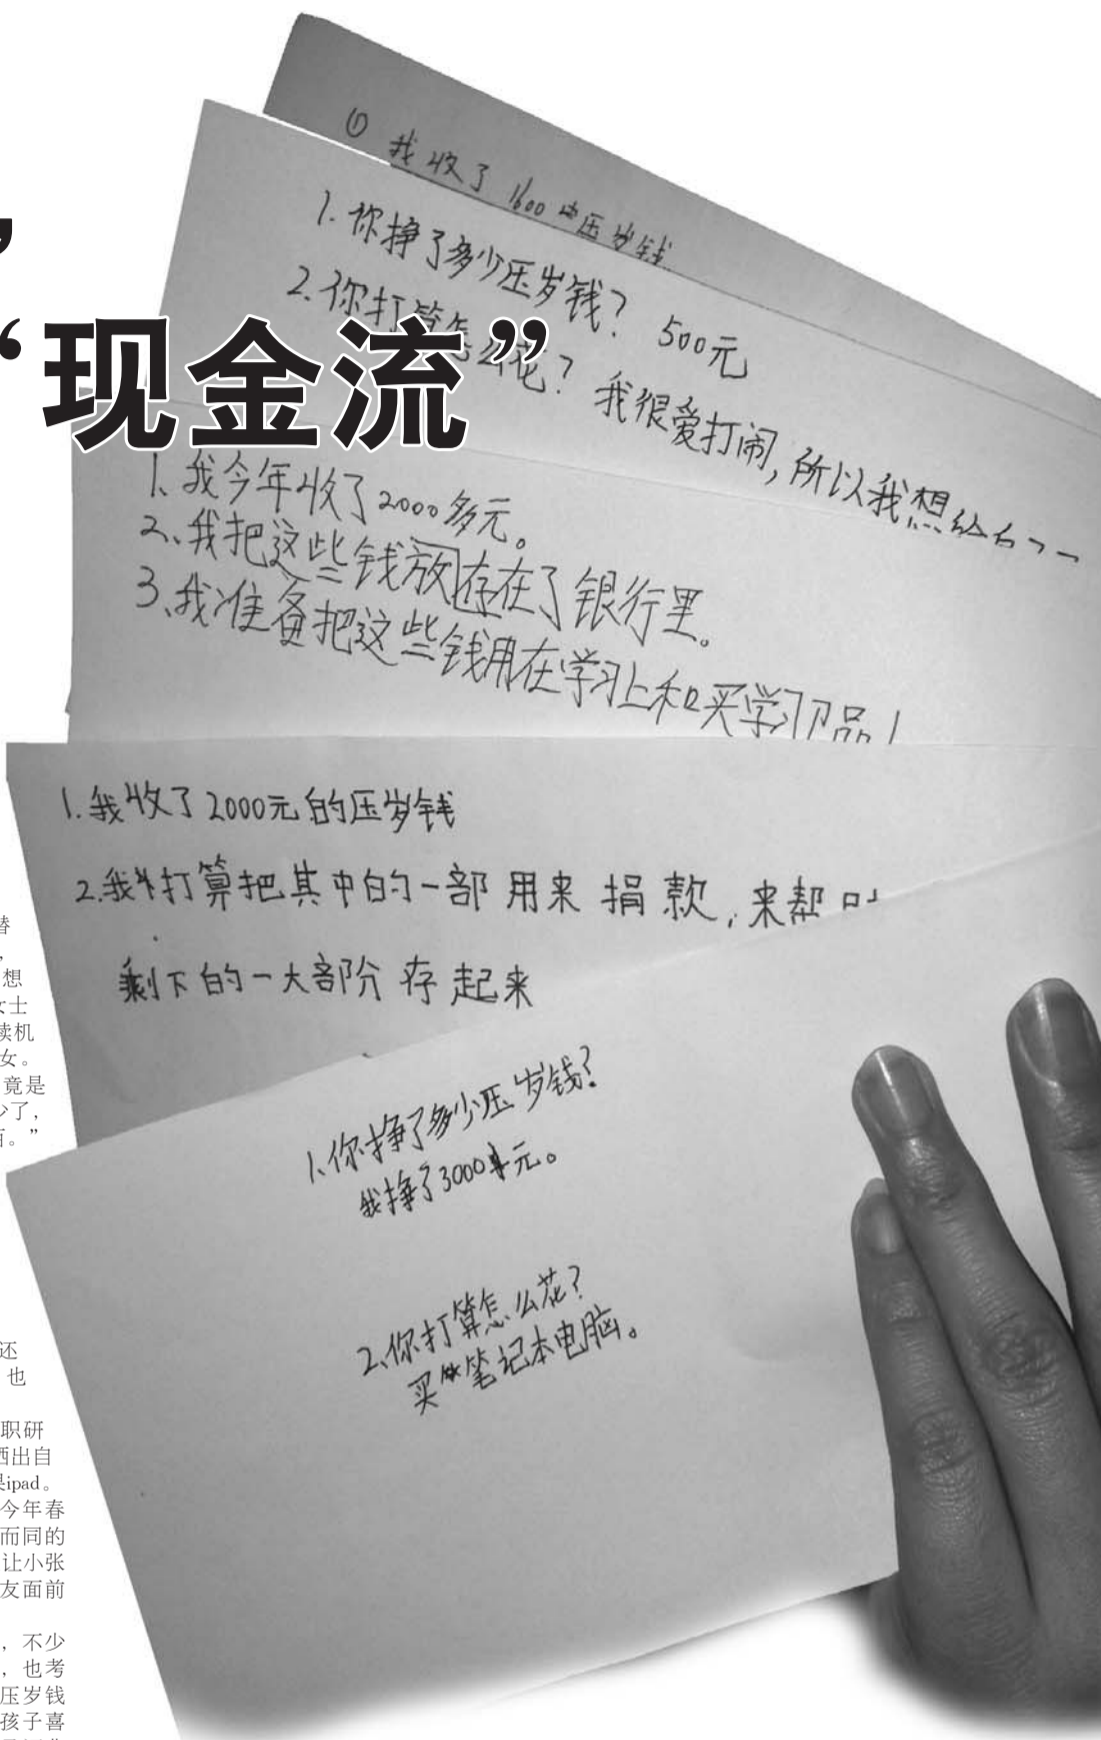 ① 我收了1600的压岁钱
1.你挣了多少压岁钱? 500元
2.你打算怎么花? 我很爱打闹,所以我想给
“现金流”
1、我今年收了2000多元。
2、我把这些钱放存在了银行里。
3、我准备把这些钱用在学习上和买学习用品!
1.我收了2000元的压岁钱
2.我打算把其中的一部用来捐款,来帮
剩下的一大部分存起来
1、你挣了多少压岁钱?
我挣了3000元。
2、你打算怎么花?
买笔记本电脑。
替
,
想
女士
读机
女。
竟是
少了,
百。”
还
也
职研
晒出自
是ipad。
今年春
而同的
让小张
友面前
,不少
,也考
压岁钱
孩子喜